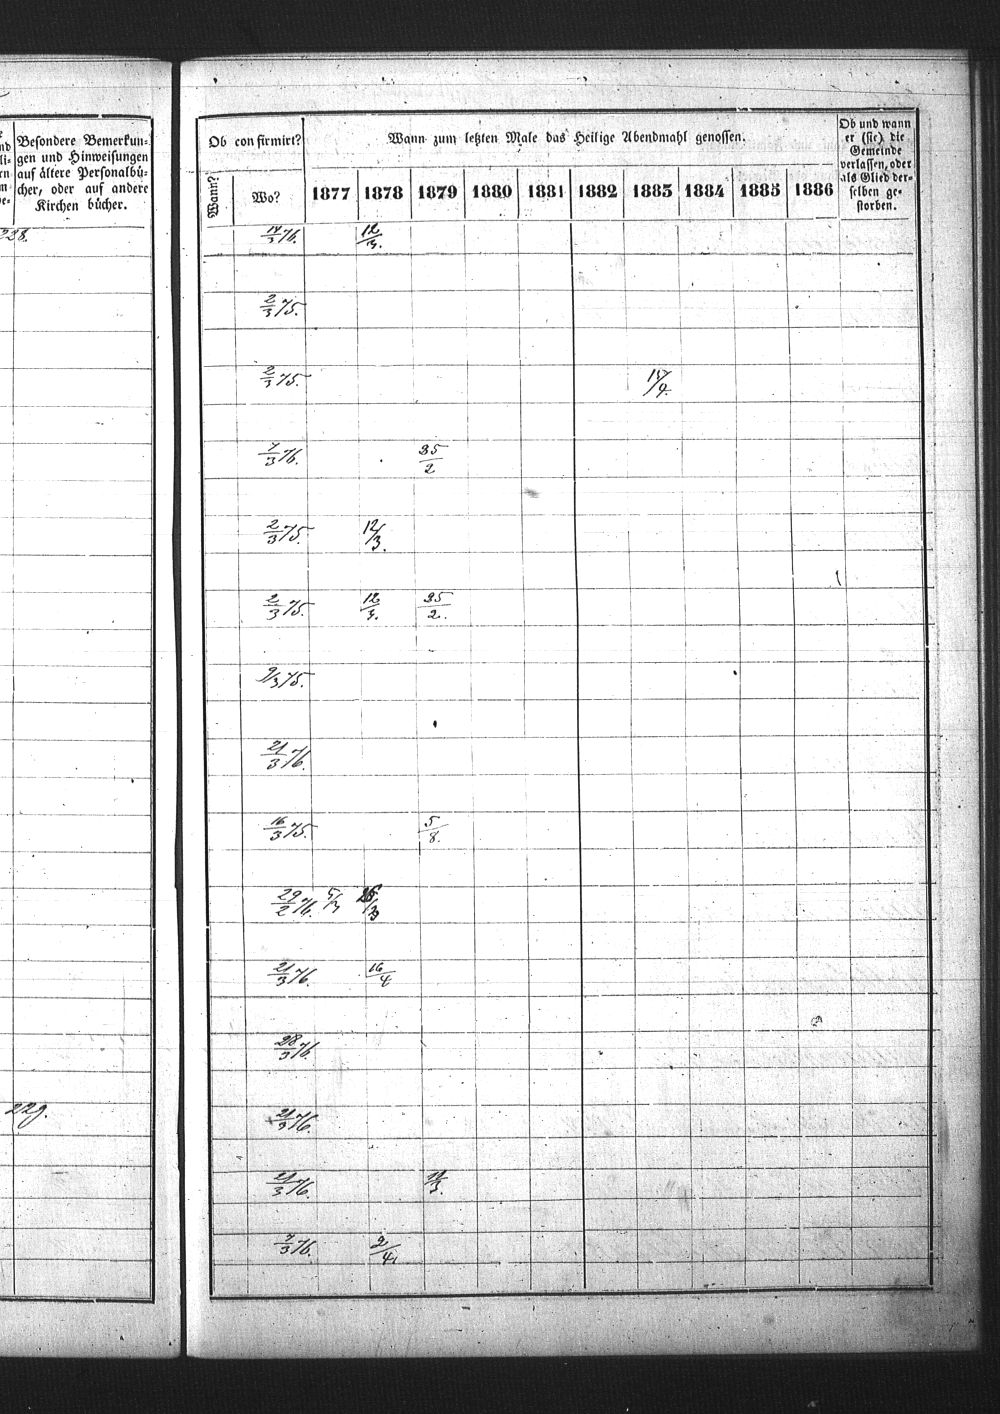 Besondere Bemerkun-
gen und Hinweisungen
auf ältere Personalbü-
cher, oder auf andere
Kirchen bücher.
228.
229.
Ob confirmirt?
Wann zum letzten Male das Heilige Abendmahl genossen.
Ob und wann
er (sie) die
Gemeinde
verlassen, oder
als Glied der-
selben ge-
storben.
Wann?
Wo?
1877 1878 1879 1880 1881 1882 1883 1884 1885 1886
14/3 76. 12/3.
2/3 75.
2/3 75.
7/3 76. 25/2
2/3 75. 12/3.
2/3 75. 12/3. 25/2.
9/3 75.
21/3 76.
16/3 75. 5/8.
29/2 76. 5/3
21/3 76. 16/4
28/3 76.
21/3 76.
21/3 76.
7/3 76. 2/4.